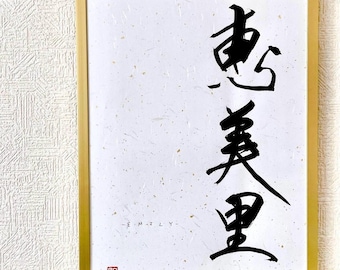 恵美里